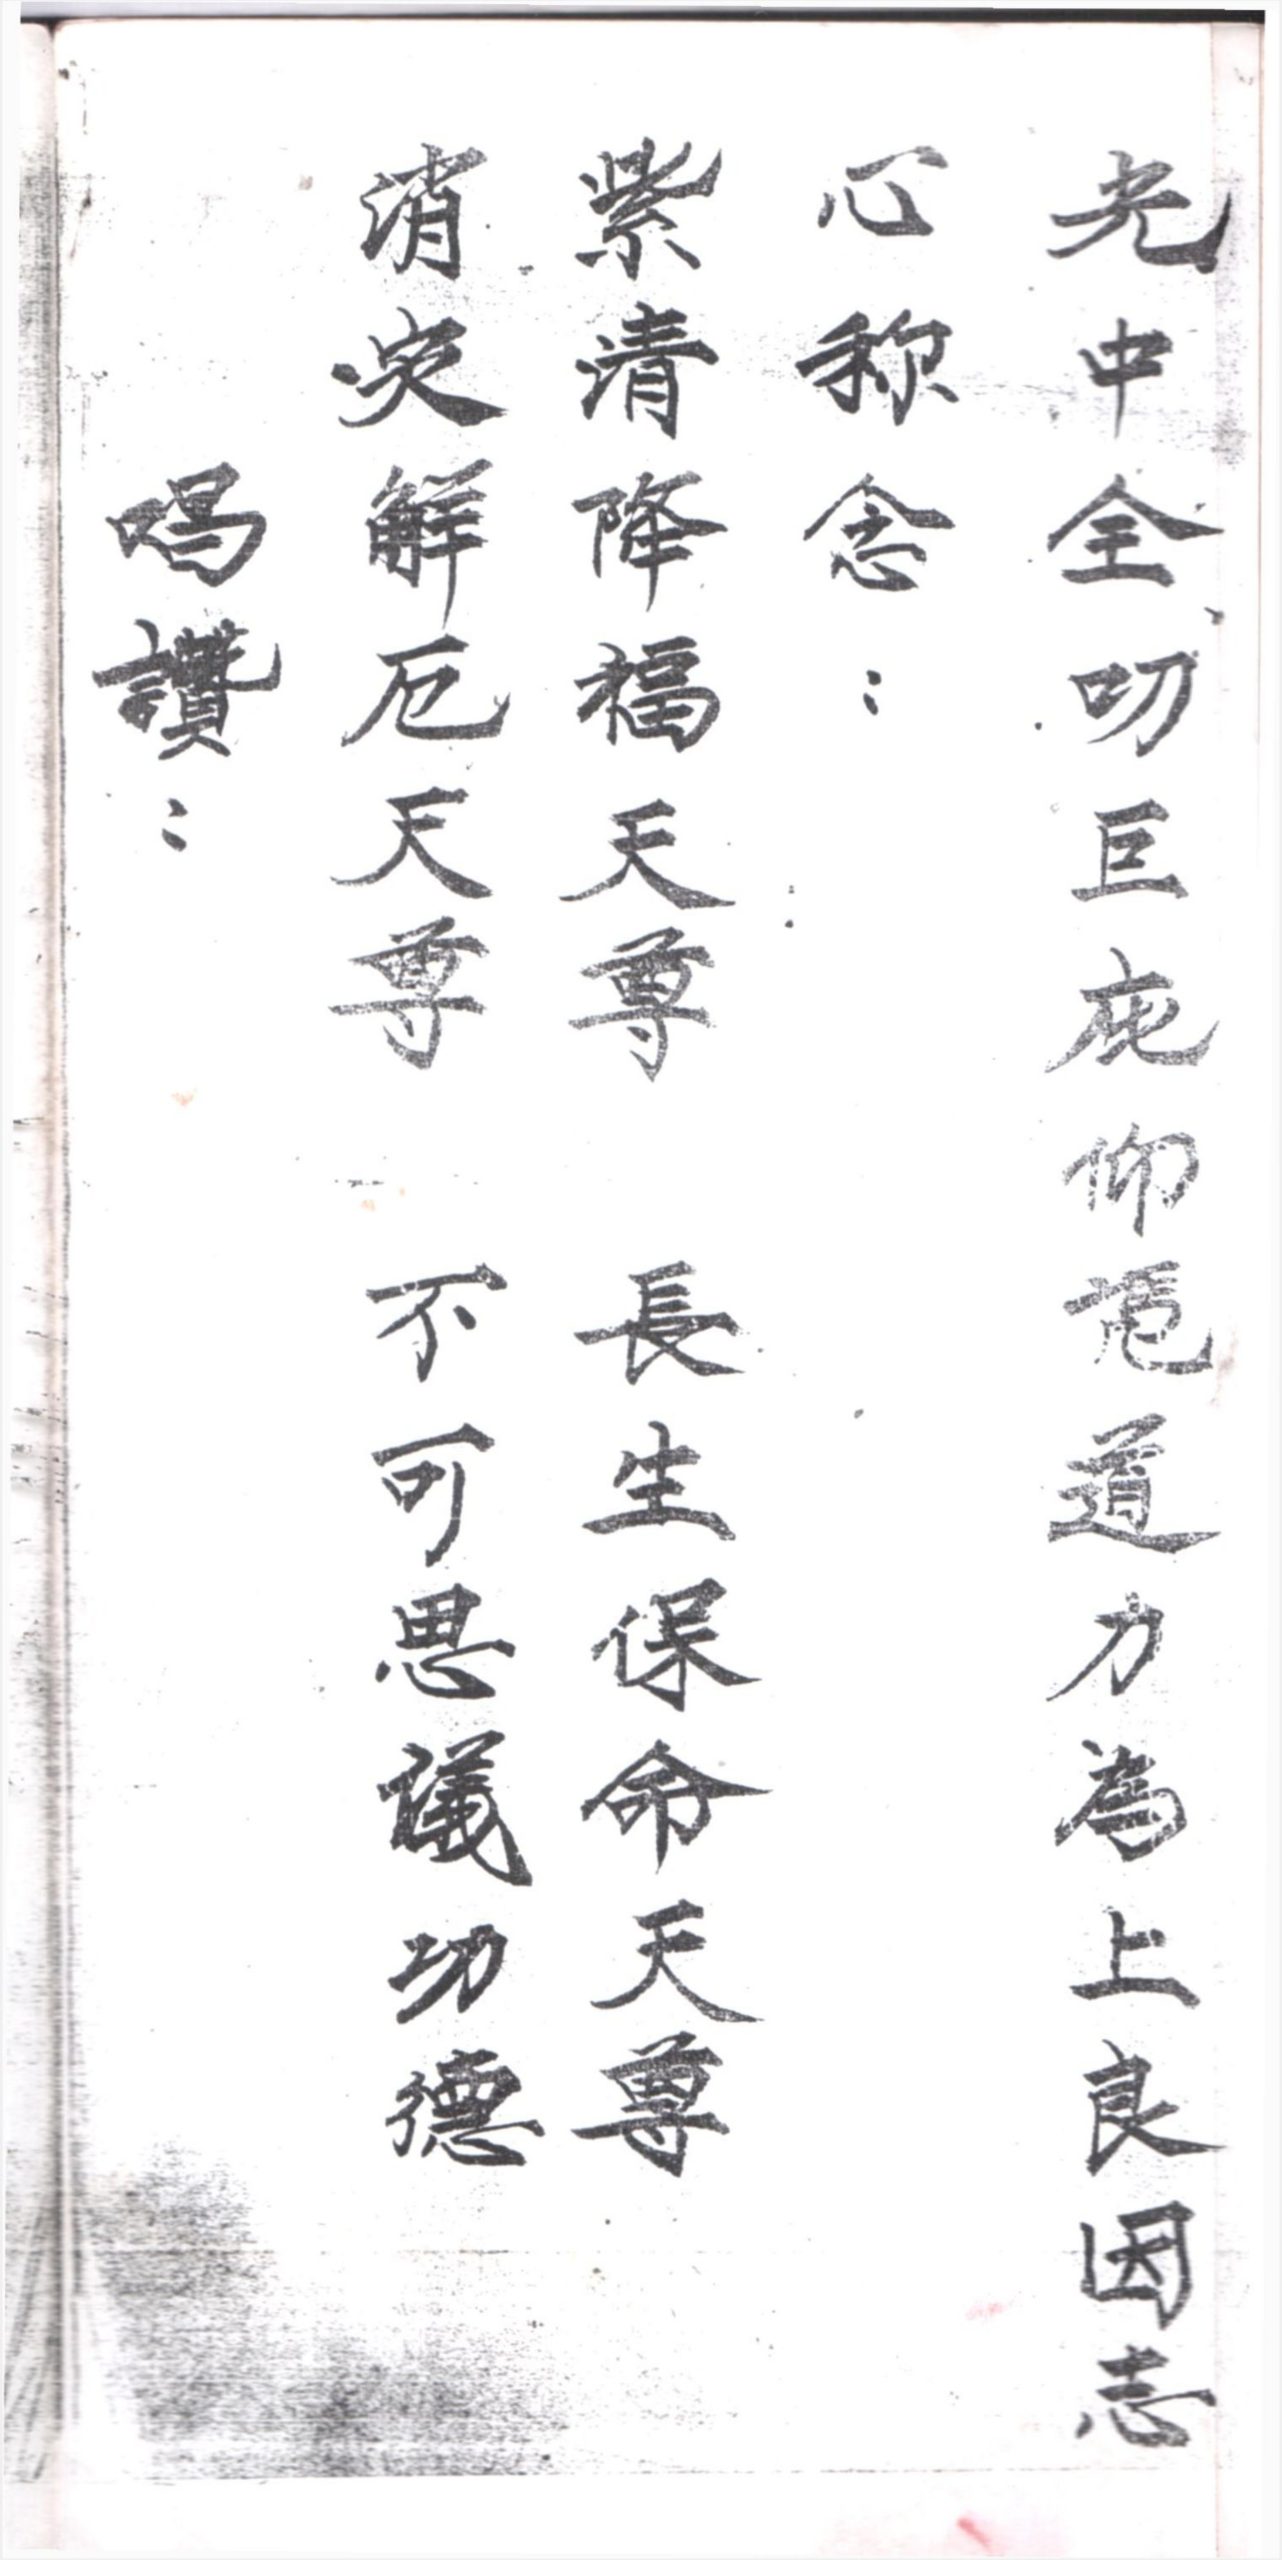 光中全叨巨庇仰凴道力為上良因志
心称念：
紫清降福天尊　長生保命天尊
消灾解厄天尊　不可思議功德
唱讚：